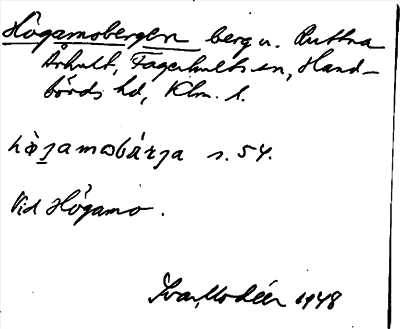 Högamobergen berg u. Ruttna
Århult, Fagerhults sn, Hand-
börds hd, Klm. l.
s. 54.
Vid Högamo.
Ivar Modéer 1948